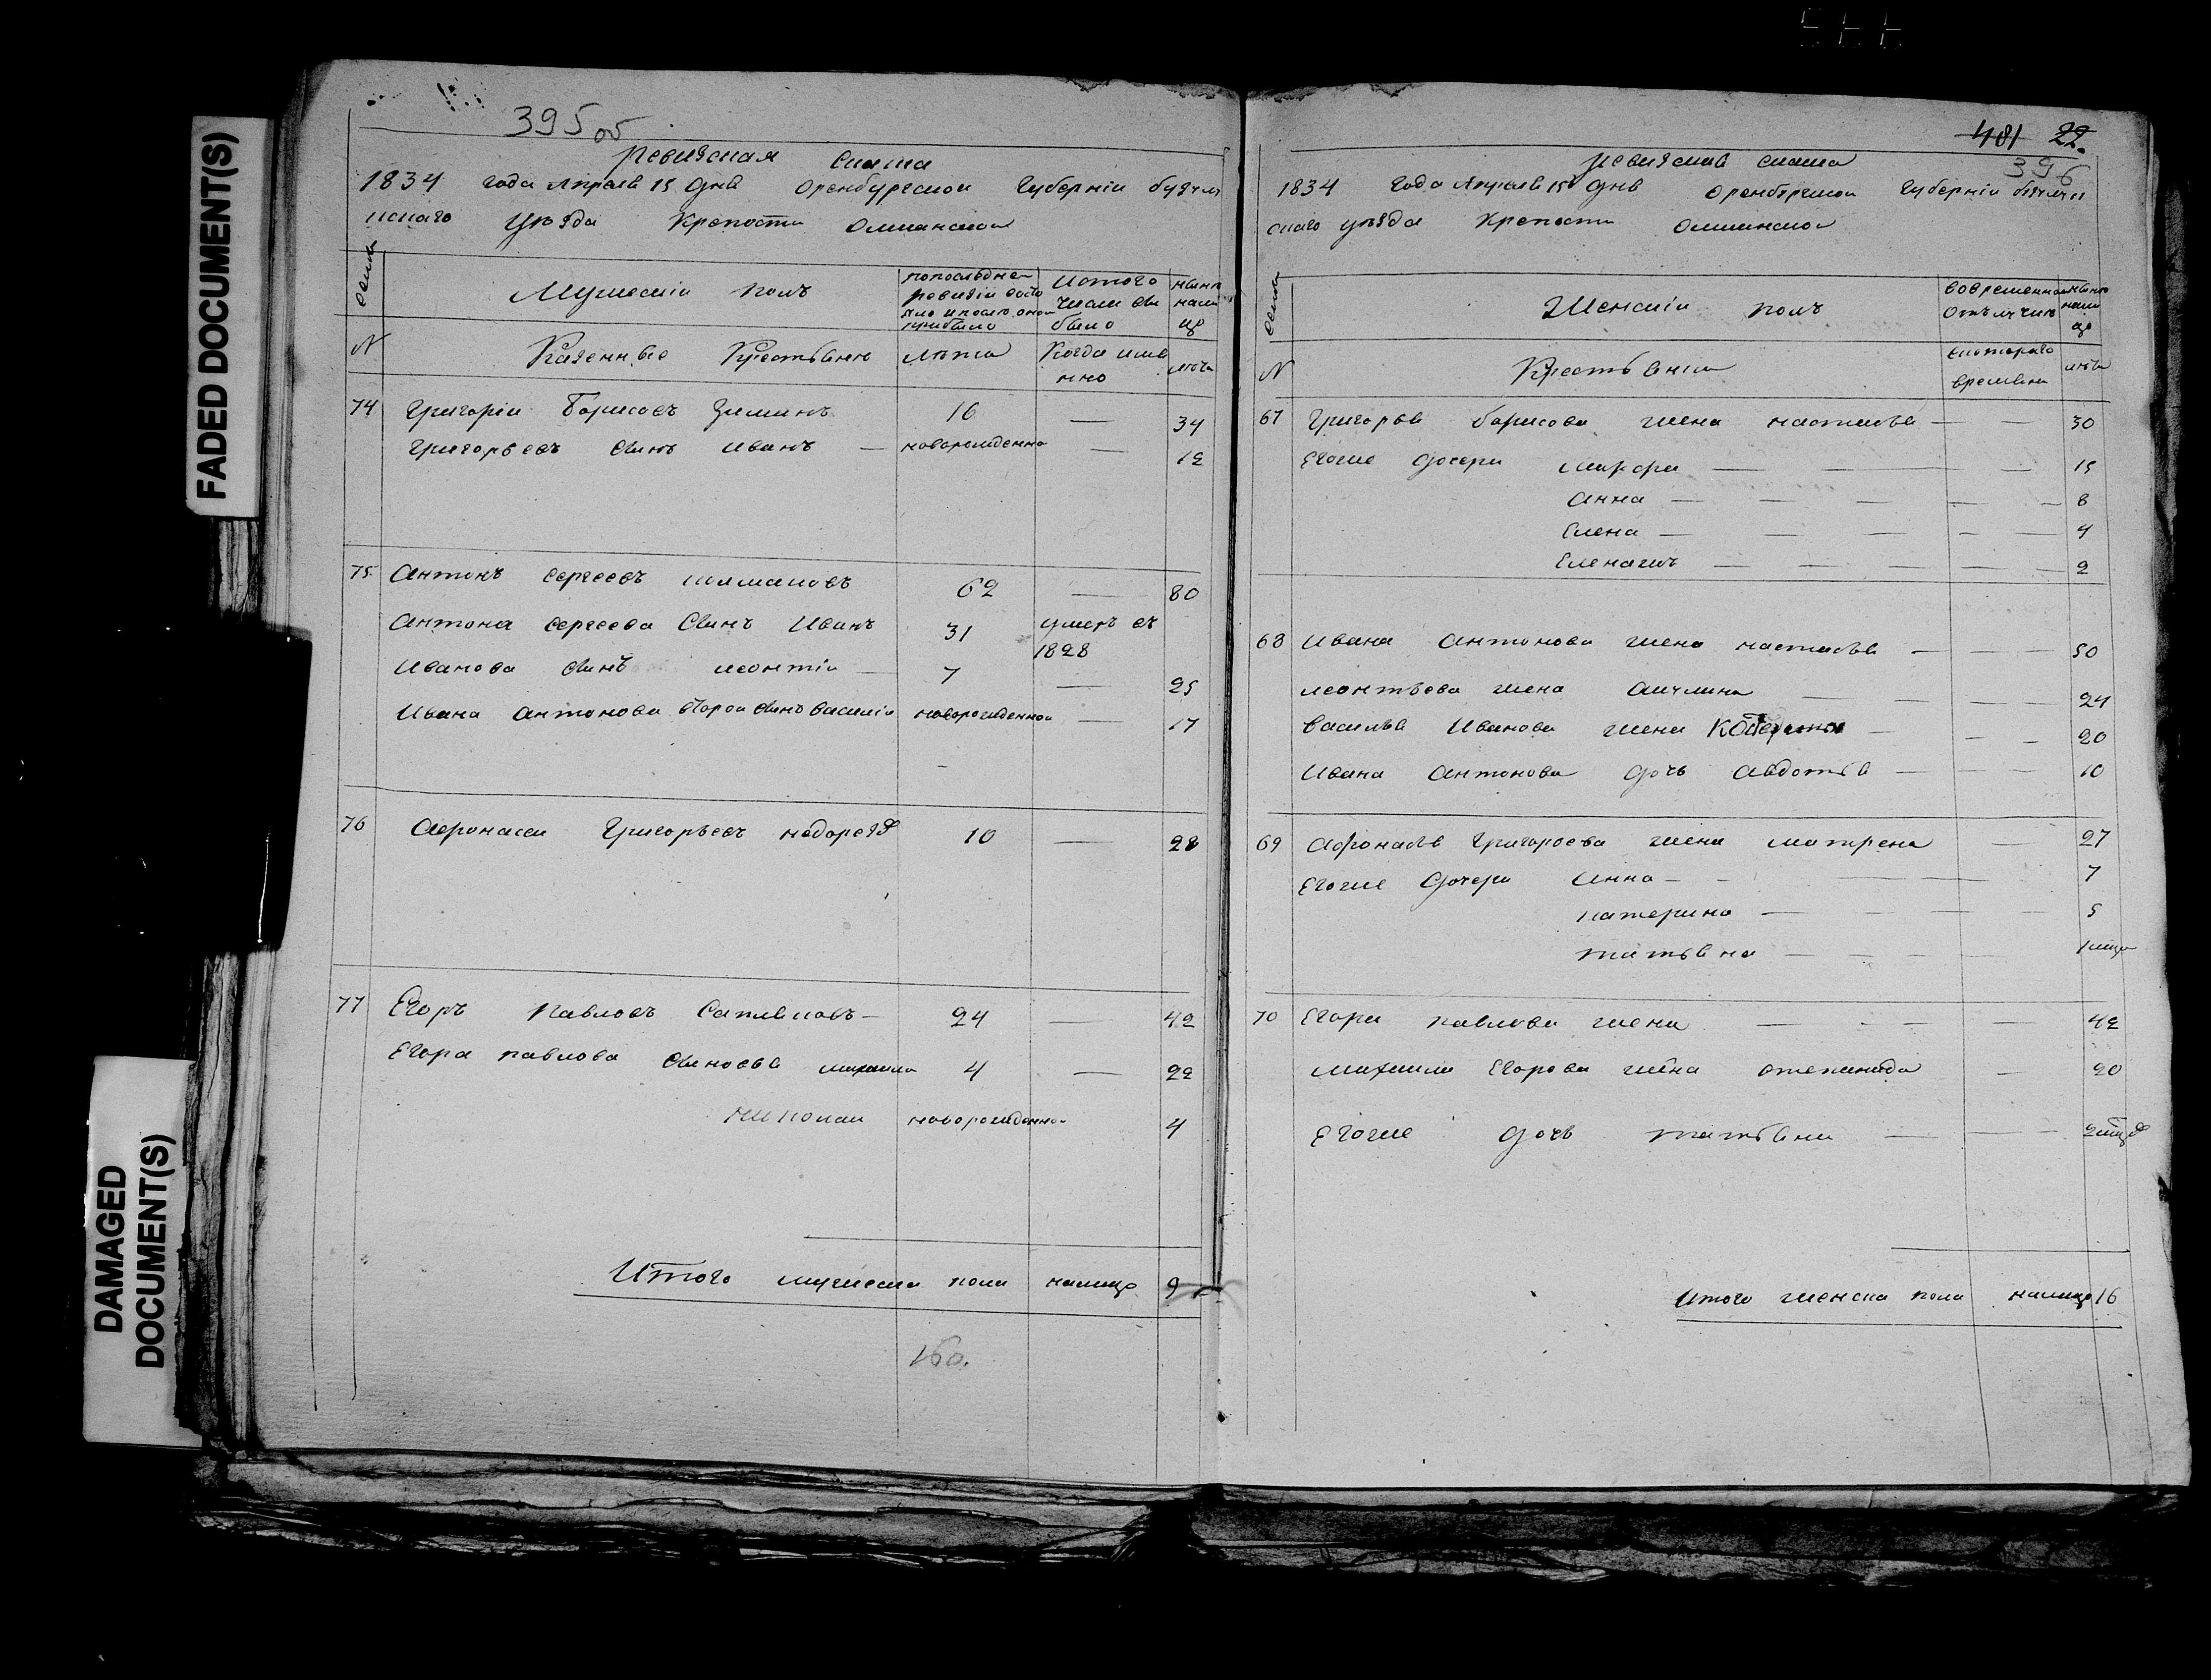 FADED DOCUMENT(S)
DAMAGED DOCUMENT(S)
395 об
Ревизская сказка
1834 года Апреля 15 дня Оренбургской Губернии бузулу
кскаго уѣзда Крепости Олшанской
семьи
Мужескiй полъ
попоследней ревизiи состояло и после оной прибыло
истого числа выбыло
ныне налицо
N
Казенные Крестьяне
лѣта
Когда имянно
лѣта
74 Григорiй Борисовъ Зиминъ 16 — 34
Григорьевъ сынъ Иванъ — новорожденно — 12
75 Антонъ Сергеевъ 62 — 80
Антона Сергеева сынъ Иванъ 31 умеръ въ 1828
Иванова сынъ леонтiй — 7 — 25
Ивана Антонова второй сынъ Василiй новорожденной — 17
76 Афонасей Григорьевъ 10 — 28
77 Егоръ Павловъ — 24 — 42
Егора павлова сыновья михаила 4 — 22
николай новорожденно 4
Итого мужеска пола налицо 9
160.
481 22.
396
ревизская сказка
1834 года Апреля 15 дня Оренбургской Губернии бузулу
кскаго уѣзда Крепости Олшанской
семьи
Женскiй полъ
вовременной отълучке
ныне налицо
N
Крестьянки
скоторого времяни
лѣта
67 Григорья борисова жена настасья — — 30
Егоже дочери — — — — 15
Анна — — — — — 8
Елена — — — — — 4
— — — — 2
68 Ивана Антонова жена настасья — — — 50
леонтьева жена — — — 24
Василья Иванова жена — — — 20
Ивана Антонова дочь Авдотья — — — 10
69 Афонасья Григорьева жена матрена — 27
Егоже дочери Анна — — — 7
катерина — — — — 5
татьяна — — — — 1 мца
70 Егора павлова жена — — — — 42
михаила Егорова жена степанида — 20
Егоже дочь татьяна — — 2 мца
Итого женска пола налицо 16